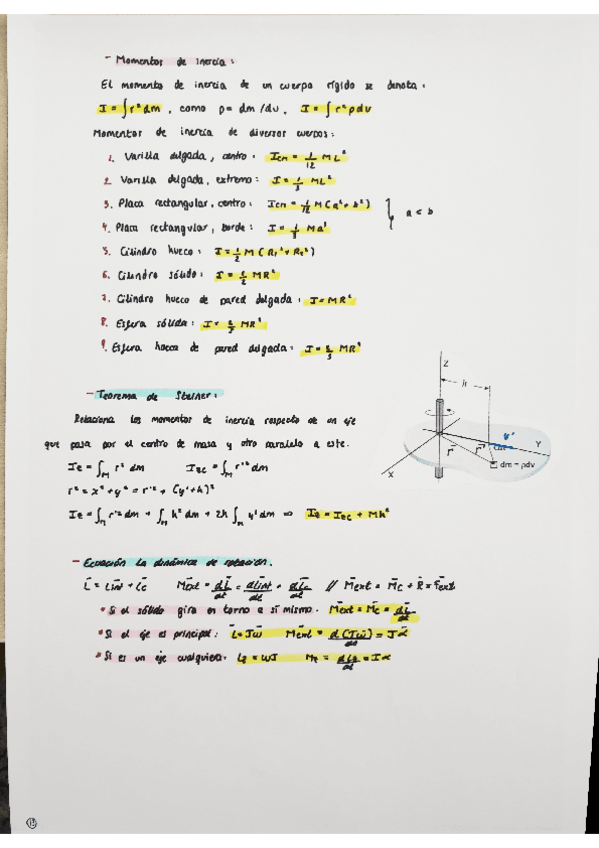 - Momentos de inercia:
El momento de inercia de un cuerpo rígido se denota:
I = ∫ r² dm , como ρ = dm/dv , I = ∫ r² ρ dv
Momentos de inercia de diversos cuerpos:
1. Varilla delgada, centro: Icm = 1/12 ML²
2. Varilla delgada, extremo: I = 1/3 ML²
3. Placa rectangular, centro: Icm = 1/12 M(a²+b²) } a < b
4. Placa rectangular, borde: I = 1/3 Ma²
5. Cilindro hueco: I = 1/2 M (R₁²+R₂²)
6. Cilindro sólido: I = 1/2 MR²
7. Cilindro hueco de pared delgada: I = MR²
8. Esfera sólida: I = 2/5 MR²
9. Esfera hueca de pared delgada: I = 2/3 MR²
- Teorema de Steiner:
Relaciona los momentos de inercia respecto de un eje
que pasa por el centro de masa y otro paralelo a este.
Z
h
y'
r r'
Y
X
dm = ρdv
Iz = ∫M r² dm Izc = ∫M r'² dm
r² = x² + y² = r'² + (y'+h)²
Iz = ∫M r'² dm + ∫M h² dm + 2h ∫M y' dm ⇒ Iz = Izc + Mh²
- Ecuación la dinámica de rotación.
L = Lint + Lc Mext = dL/dt = dLint/dt + dLc/dt // Mext = Mc + R × Fext
• Si el sólido gira en torno a sí mismo. Mext = Mc = dL/dt
• Si el eje es principal: L = Iω Mext = d(Iω)/dt = Iα
• Si es un eje cualquiera: Lz = ωI Mz = dLz/dt = Iα